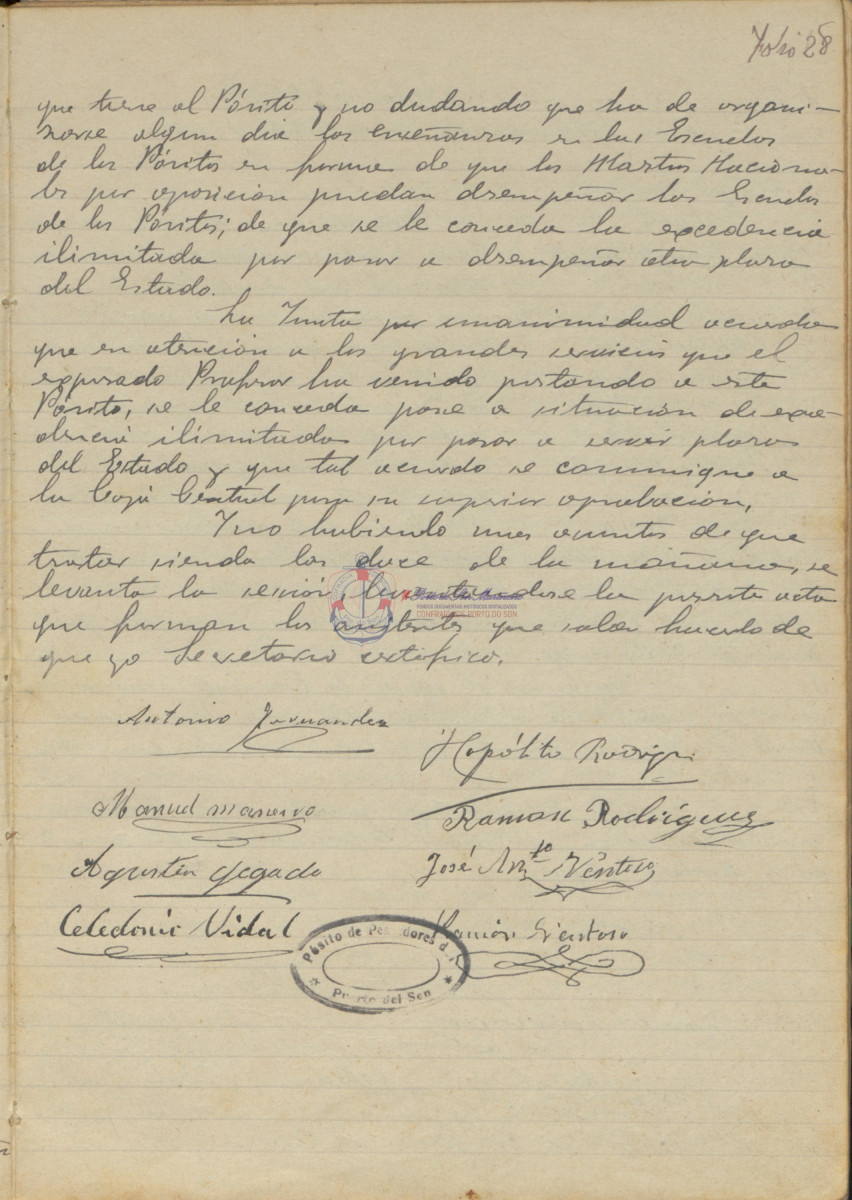 Folio 28
que tiene al Pósito y no dudando que ha de organi-
zarse algun dia las enseñanzas en las Escuelas
de los Pósitos en forma de que los Maestros Naciona-
les por oposición puedan desempeñar las Escuelas
de los Pósitos; de que se le conceda la excedencia
ilimitada por pasar a desempeñar otra plaza
del Estado.
La Junta por unanimidad acuerda
que en atención a los grandes servicios que el
expresado Profesor ha venido prestando a este
Pósito, se le conceda pase a situación de exce-
dencia ilimitada por pasar a servir plaza
del Estado y que tal acuerdo se comunique a
la Caja Central para su superior aprobación.
Y no habiendo mas asuntos de que
tratar siendo las doce de la mañana, se
levanta la sesión, levantandose la presente acta
que firman los asistentes que saben hacerlo de
que yo Secretario certifico.
Antonio Fernandez
Hopólito Rodrigz
Manuel
Ramon Rodríguez
Agustín
José Ventoso
Celedonio Vidal
Ramón Ventoso
Pósito de Pescadores de
Puerto del Son
FONDOS DOCUMENTAIS HISTÓRICOS DIXITALIZADOS
CONFRARÍA DE PORTO DO SON